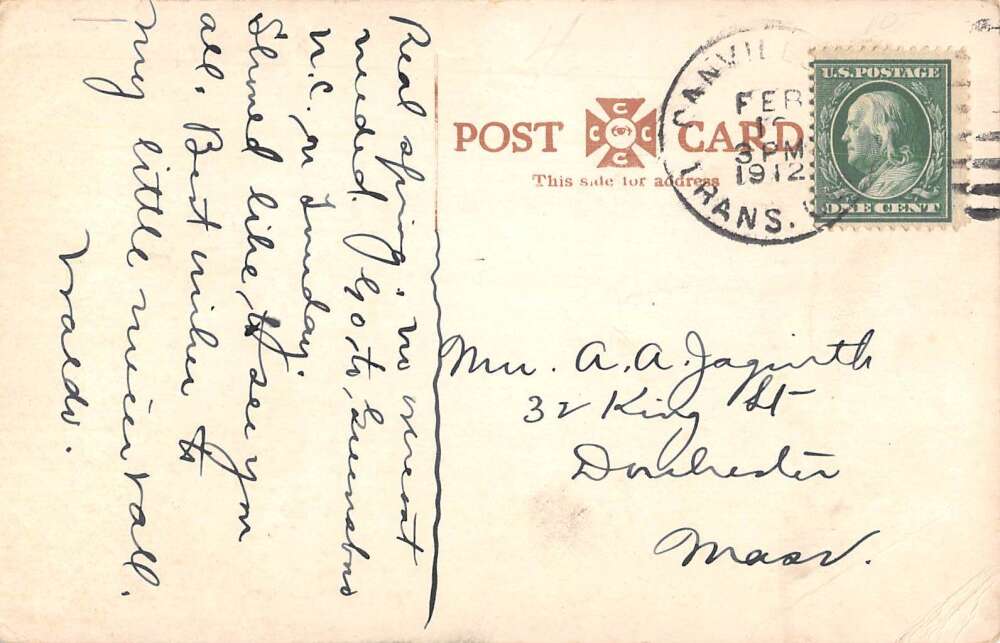 Real spring, no overcoat
needed. Go to, Greensboro
N.C. on Sunday.
Should like, to see you
all. Best wishes to
my little nieces + all.
Waldo.
POST CARD
C C C C
This side for address
DANVILLE
FEB
3 PM
1912
TRANS.
U.S. POSTAGE
ONE CENT
Mrs. A. A.
32 King St
Dorchester
Mass.